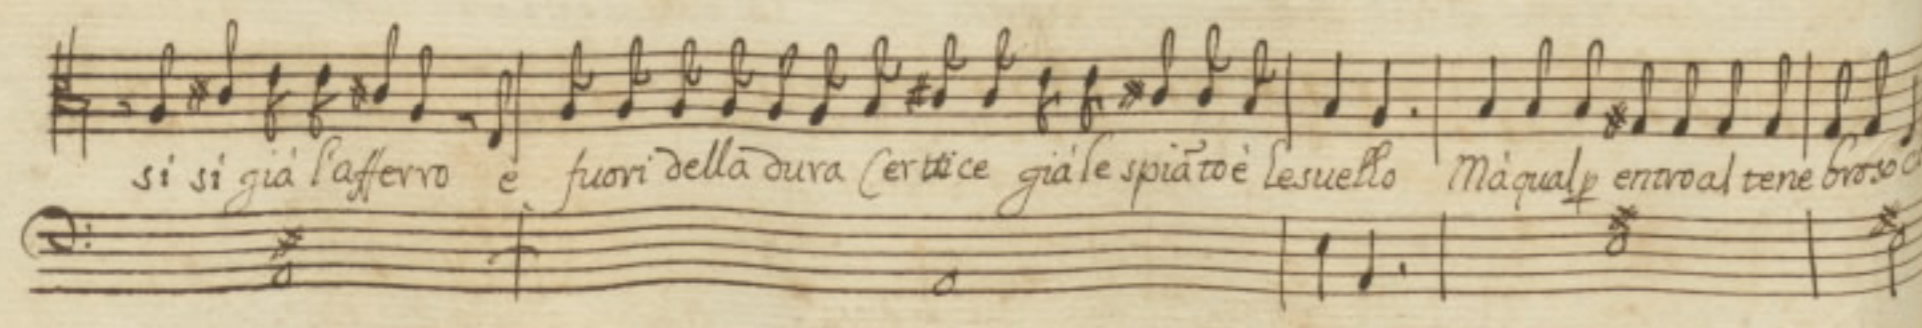 si si già l'afferro è fuori della dura Certtice già le spiãto è lesuello Mà qual p entro al tenebroso